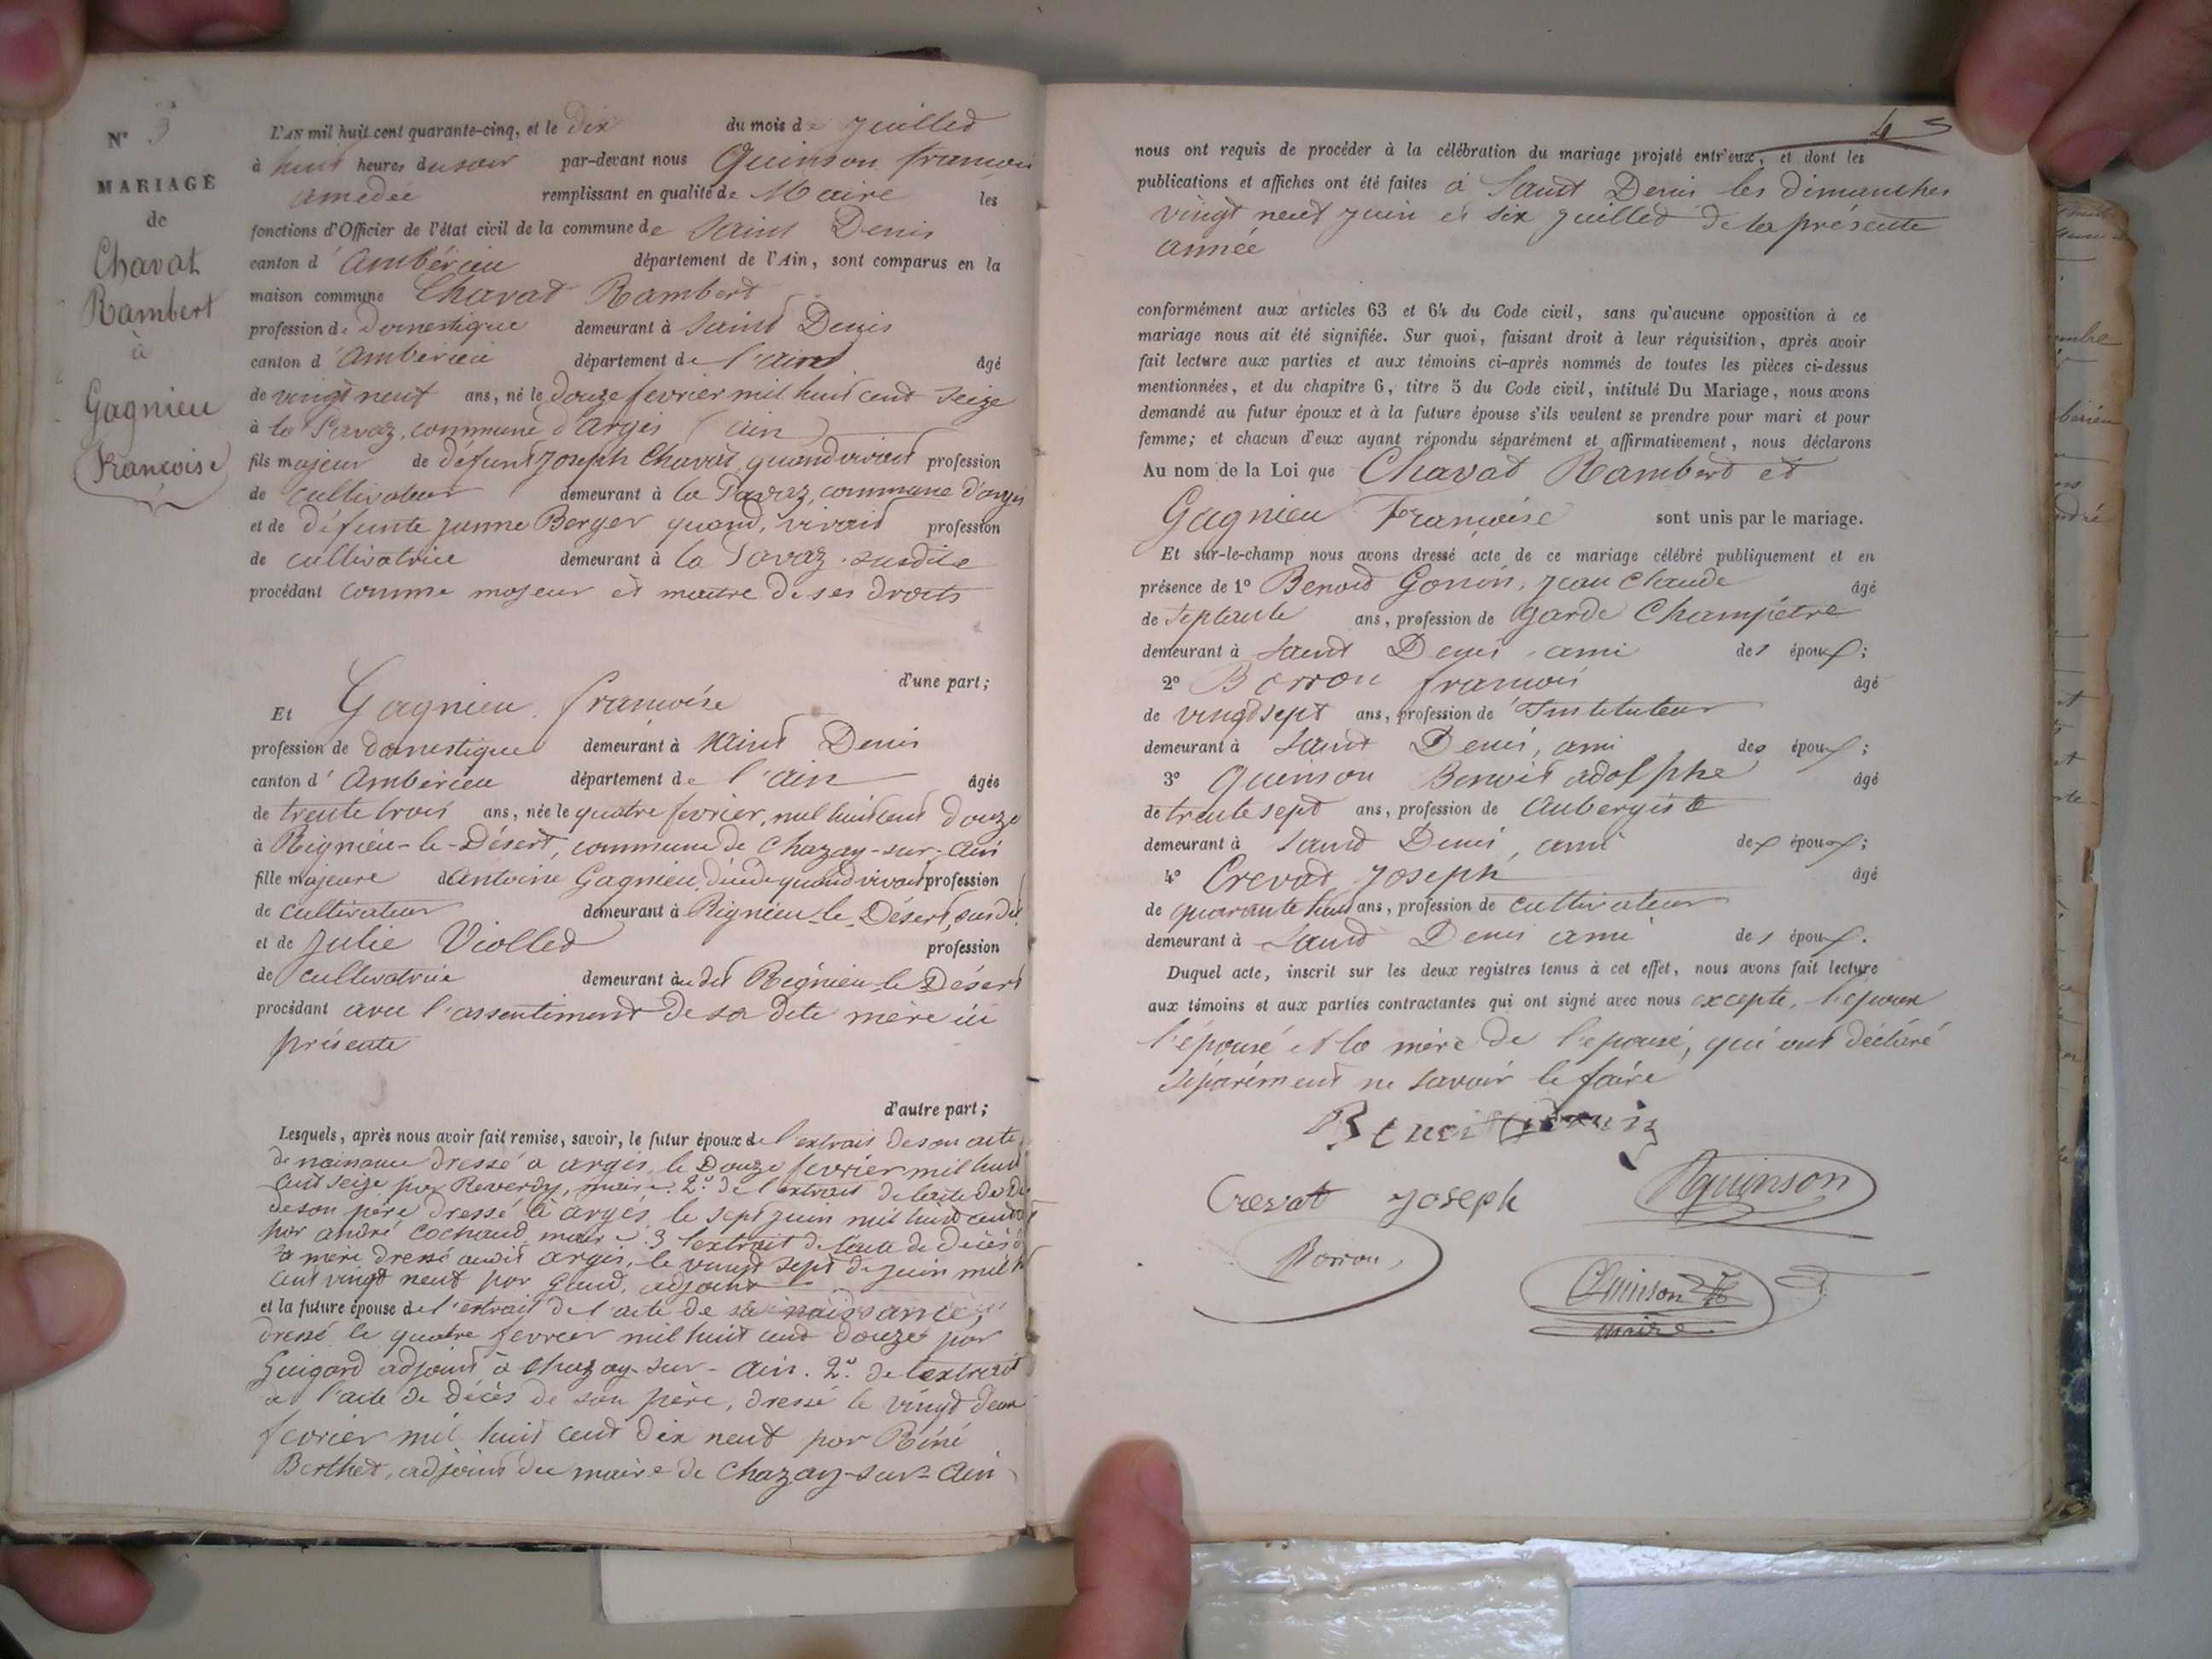 N° 3
MARIAGE
de
Chavat
Rambert
à
Gagnieu
Francoise
L'AN mil huit cent quarante-cinq, et le dix du mois de juillet
à huit heures du soir par-devant nous Quinson francois
amedée remplissant en qualité de Maire les
fonctions d'Officier de l'état civil de la commune de Saint Denis
canton d'Ambérieu département de l'Ain, sont comparus en la
maison commune Chavat Rambert
profession de domestique demeurant à Saint Denis
canton d'Ambérieu département de l'ain âgé
de vingt neuf ans, né le douze fevrier mil huit cent seize
à la Pavaz, commune d'Argis (ain)
fils majeur de défunt Joseph Chavat, quand vivait profession
de cultivateur demeurant à la Pavaz, commune d'argis
et de défunte jeanne Berger quand, vivait profession
de cultivatrice demeurant à la Pavaz susdite
procédant comme majeur et maitre de ses droits
d'une part;
Et Gagnieu francoise
profession de domestique demeurant à Saint Denis
canton d'Ambérieu département de l'ain âgée
de trente trois ans, née le quatre fevrier, mil huit cent douze
à Rignieu-le-Désert, commune de Chazay-sur-Ain
fille majeure d'antoine Gagnieu, décédé quand vivait profession
de cultivateur demeurant à Rignieu-le-Désert, susdit
et de Julie Viollet profession
de cultivatrice demeurant au dit Rignieu-le-Désert
procédant avec l'assentiment de sa dite mère ici
présente
d'autre part;
Lesquels, après nous avoir fait remise, savoir, le futur époux de l'extrait de son acte
de naissance dressé à argis, le douze fevrier mil huit
cent seize par Reverdy, maire. 2° de l'extrait de l'acte de
de son père dressé à argis, le sept juin mil huit cent
par andré cochaud, maire. 3 l'extrait de l'acte de décès
sa mère dressé audit argis, le vingt sept de juin mil
cent vingt neuf par Gaud, adjoint
et la future épouse de l'extrait de l'acte de sa naissance,
dressé le quatre fevrier mil huit cent douze par
Guigard adjoint à Chazay-sur-Ain. 2° de l'extrait
de l'acte de décès de son père, dressé le vingt deux
fevrier mil huit cent dix neuf par Réné
Berthet, adjoint du maire de Chazay-sur-Ain
nous ont requis de procéder à la célébration du mariage projeté entr'eux, et dont les
publications et affiches ont été faites à Saint Denis les dimanches
vingt neuf juin et six juillet de la présente
année
conformément aux articles 63 et 64 du Code civil, sans qu'aucune opposition à ce
mariage nous ait été signifiée. Sur quoi, faisant droit à leur réquisition, après avoir
fait lecture aux parties et aux témoins ci-après nommés de toutes les pièces ci-dessus
mentionnées, et du chapitre 6, titre 5 du Code civil, intitulé Du Mariage, nous avons
demandé au futur époux et à la future épouse s'ils veulent se prendre pour mari et pour
femme; et chacun d'eux ayant répondu séparément et affirmativement, nous déclarons
Au nom de la Loi que Chavat Rambert et
Gagnieu Francoise sont unis par le mariage.
Et sur-le-champ nous avons dressé acte de ce mariage célébré publiquement et en
présence de 1° Benoid Gonin, jean claude âgé
de septante ans, profession de garde Champêtre
demeurant à Saint Denis, ami des époux;
2° Borron francois âgé
de vingt sept ans, profession de Instituteur
demeurant à Saint Denis, ami des époux;
3° Quinson Benoit adolphe âgé
de trente sept ans, profession de Aubergiste
demeurant à Saint Denis, ami des époux;
4° Crevat Joseph âgé
de quarante huit ans, profession de cultivateur
demeurant à Saint Denis ami des époux.
Duquel acte, inscrit sur les deux registres tenus à cet effet, nous avons fait lecture
aux témoins et aux parties contractantes qui ont signé avec nous excepté, l'époux
l'épouse et la mère de l'epouse, qui ont déclaré
séparément ne savoir le faire
Benoit Gonin
Crevat Joseph
Quinson
Borron
Quinson
maire